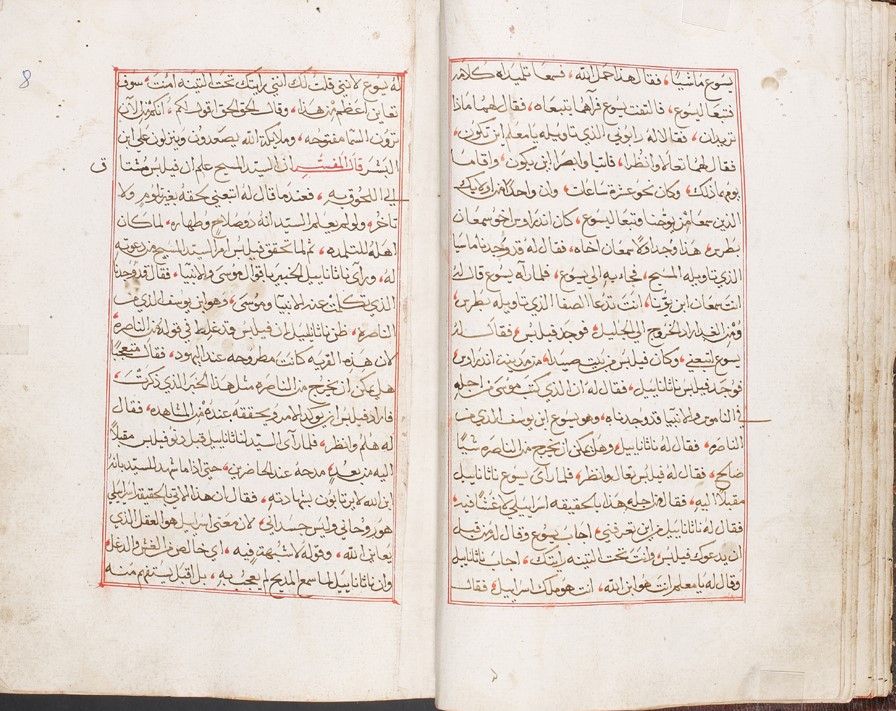 يسوع ماشيا، فقال هذا حمل الله، فسمعا تلميداه كلامه
فتبعا ليسوع، فالتفت يسوع فرآهما يتبعاه، فقال لهما ماذا
تريدان، فقالا له رابوني الذي تاويله يا معلم اين تكون،
فقال لهما تعالا وانظرا، فاتيا وابصرا اين يكون، واقاما
يوم ماذلك، وكان نحو عشرة ساعات، وان واحدا من اولايك
الذين سمعا من يوحنا وتبعا ليسوع، كان اندراوس اخو سمعان
بطرس، هذا وجد اولا سمعان اخاه، فقال له قد وجدنا ماسيا
الذي تاويله المسيح، فجا به الى يسوع، فلما رآه يسوع قال له
انت سمعان ابن يونا، انت تدعا الصفا الذي تاويله بطرس،
ومن الغد اراد الخروج الى الجليل، فوجد فيلبس، فقال له
يسوع اتبعني، وكان فيلبس من بيت صيدا، من مدينة اندراوس
فوجد فيلبس ناثاناييل، فقال له ان الذي كتب موسى من اجله
في الناموس والانبيا قد وجدناه، وهو يسوع ابن يوسف الذي من
الناصره، فقال له ناثاناييل، وهل يمكن ان يخرج من الناصره شيا
صالح، فقال له فيلبس تعال وانظر، فلما رآى يسوع ناثاناييل
مقبلا اليه، فقال من اجله هذا بالحقيقه اسراييلي لا غش فيه،
فقال له ناثاناييل من اين تعرفني، اجاب يسوع وقال له من قبل
ان يدعوك فيلبس وانت تحت التينه رايتك، اجاب ناثاناييل
وقال له يا معلم انت هو ابن الله، انت هو ملك اسراييل، فقال
8
له يسوع لانني قلت لك انني رايتك تحت التينه امنت، سوف
تعاين اعظم من هذا، وقال الحق الحق اقول لكم، انكم من الان
ترون السما مفتوحه، وملايكة الله يصعدون وينزلون على ابن
البشر قال المفسر ان السيد المسيح علم ان فيلبس مشتاقا
ق
الى اللحوق به، فعندما قال له اتبعني لحقه بغير لوم ولا
تاخر، ولو لم يعلم السيد انه ذو صلاح وطهاره، لما كان
اهله للتلمده، ثم لما تحقق فيلبس امر السيد المسيح من دعوته
له، ورآى ناثاناييل الخبير باقوال موسى والانبيا، فقال قد وجدنا
الذي تكلمت عنه الانبيا وموسى، وهو ابن يوسف الذي من
الناصره، ظن ناثاناييل ان فيلبس قد غلط في قوله من الناصره
لان هذه القريه كانت مطروحه عند اليهود، فقال متعجبا
هل يمكن ان يخرج من الناصره مثل هذا الخبر الذي ذكرت،
فاراد فيلبس ان يوكد الامر ويحققه عنده من المشاهده، فقال
له هلم وانظر، فلما رآى السيد لناثاناييل قبل دنو فيلبس مقبلا
اليه من بعد، مدحه عند الحاضرين، حتى اذا ما شهد للسيد بانه
ابن الله لا يرتابون بشهادته، فقال ان هذا الاتي بالحقيقه اسراييلي
هو روحاني وليس جسداني، لان معنى اسراييل هو العقل الذي
يعاين الله، وقوله لا شبهة فيه، اي خالص من الغش والدغل
وان ناثاناييل لما سمع المديح لم يعجب به، بل اقبل يستفهم منه